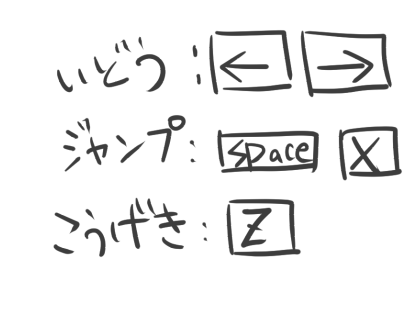 いどう:← →
ジャンプ:space X
こうげき:Z